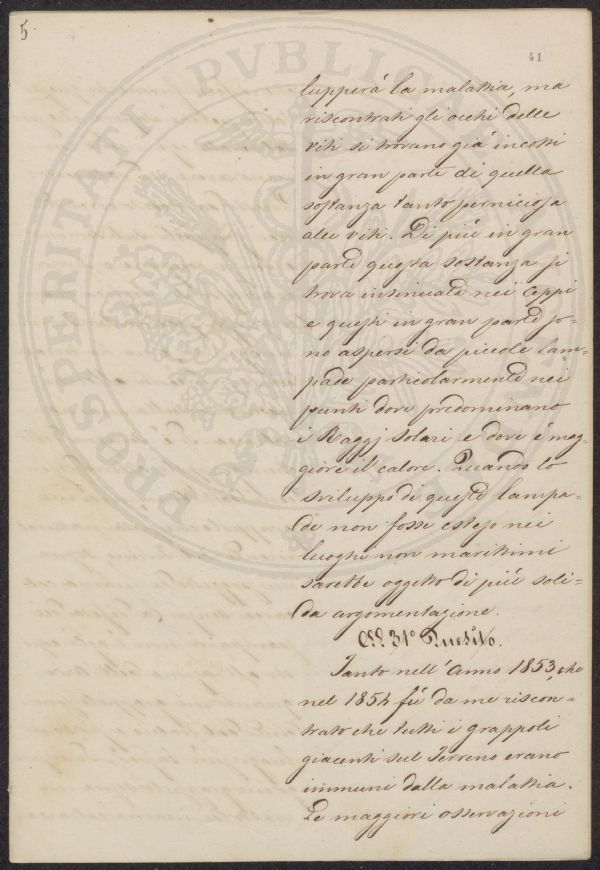 5
41
lupperá la malattia, ma
riscontrati gli occhi delle
viti si trovano giá incotti
in gran parte di quella
sostanza tanto perniciosa
alle viti. Di piú in gran
parte questa sostanza si
trova insinuata nei Ceppi
e questi in gran parte so=
no aspersi da piccole lam=
pade particolarmente nei
punti dove predominano
i Raggj solari e dove é mag=
giore il calore. Quando lo
sviluppo di queste lampa=
de non fosse esteso nei
luoghi non marittimi
sarebbe oggetto di piú soli=
da argomentazione.
All 31º Quesito.
Tanto nell' Anno 1853, che
nel 1854 fú da me riscon=
trato che tutti i grappoli
giacenti sul Terreno erano
immuni dalla malattia.
Le maggiori osservazioni
PROSPERITATI PVBLICAE